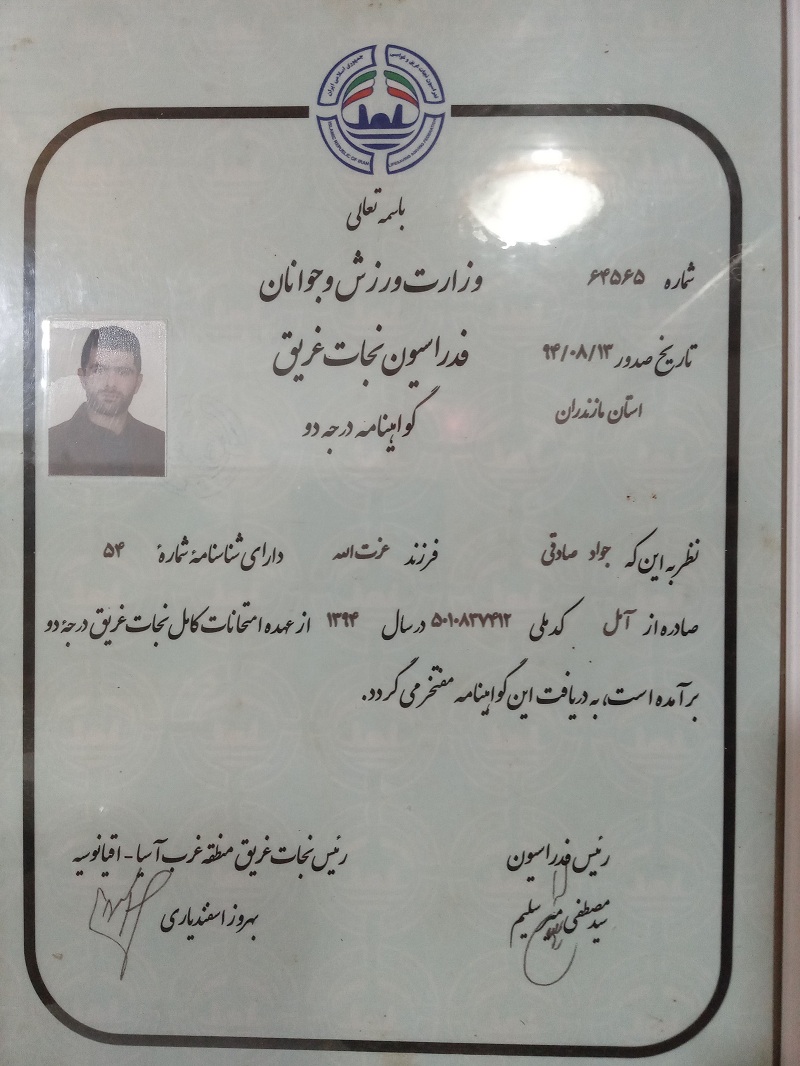 جمهوری اسلامی ایران
ISLAMIC REPUBLIC OF IRAN
باسمه تعالی
شماره ۶۴۵۶۵
وزارت ورزش و جوانان
تاریخ صدور ۹۴/۰۸/۱۳
فدراسیون نجات غریق
استان مازندران
گواهینامه درجه دو
نظر به این که جواد صادقی فرزند عزت الله دارای شناسنامهٔ شمارهٔ ۵۴
صادره از آمل کد ملی ۵۰۱۰۸۳۷۴۱۲ در سال ۱۳۹۴ از عهده امتحانات کامل نجات غریق درجهٔ دو
برآمده است، به دریافت این گواهینامه مفتخر می گردد.
رئیس فدراسیون
سید مصطفی میرسلیم
رئیس نجات غریق منطقه غرب آسیا - اقیانوسیه
بهروز اسفندیاری